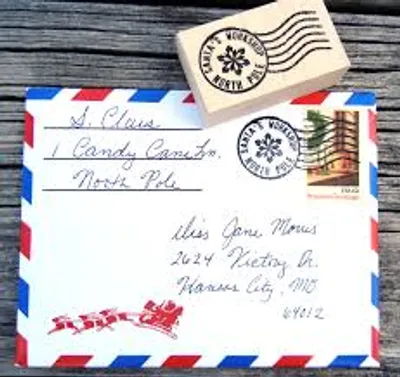 SANTA'S WORKSHOP
NORTH POLE
S. Claus
1 Candy Cane Ln.
North Pole
SANTA'S WORKSHOP
NORTH POLE
Miss Jane Morris
2624 Victory Dr.
Kansas City, MO
64012